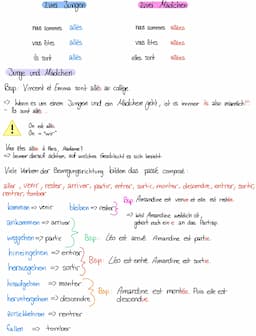 zwei Jungen zwei Mädchen
nous sommes allés nous sommes allées
vous êtes allés vous êtes allées
ils sont allés elles sont allées
Junge und Mädchen
Bsp. Vincent et Emma sont allés au collège.
→ Wenn es um einen Jungen und ein Mädchen geht, ist es immer ils also männlich
- Ils sont allés
! On est allés.
On = "wir"
Vous êtes allée à Paris, Madame?
→ Immer darauf achten, auf welches Geschlecht es sich bezieht
Viele Verben der Bewegungsrichtung bilden das passé composé:
aller, venir, rester, arriver, partir, entrer, sortir, monter, descendre, entrer, sortir,
rentrer, tomber
kommen → venir bleiben → rester Bsp. Amandine est venue et elle est restée.
ankommen → arriver → Weil Amandine weiblich ist,
weggehen → partir Bsp. Léo est arrivé. Amandine est partie.
hineingehen → entrer
herausgehen → sortir Bsp. Léo est entré. Amandine est sortie.
hinaufgehen → monter
heruntergehen → descendre Bsp. Amandine est montée. Puis elle est
descendue.
zurückkehren → rentrer
fallen → tomber